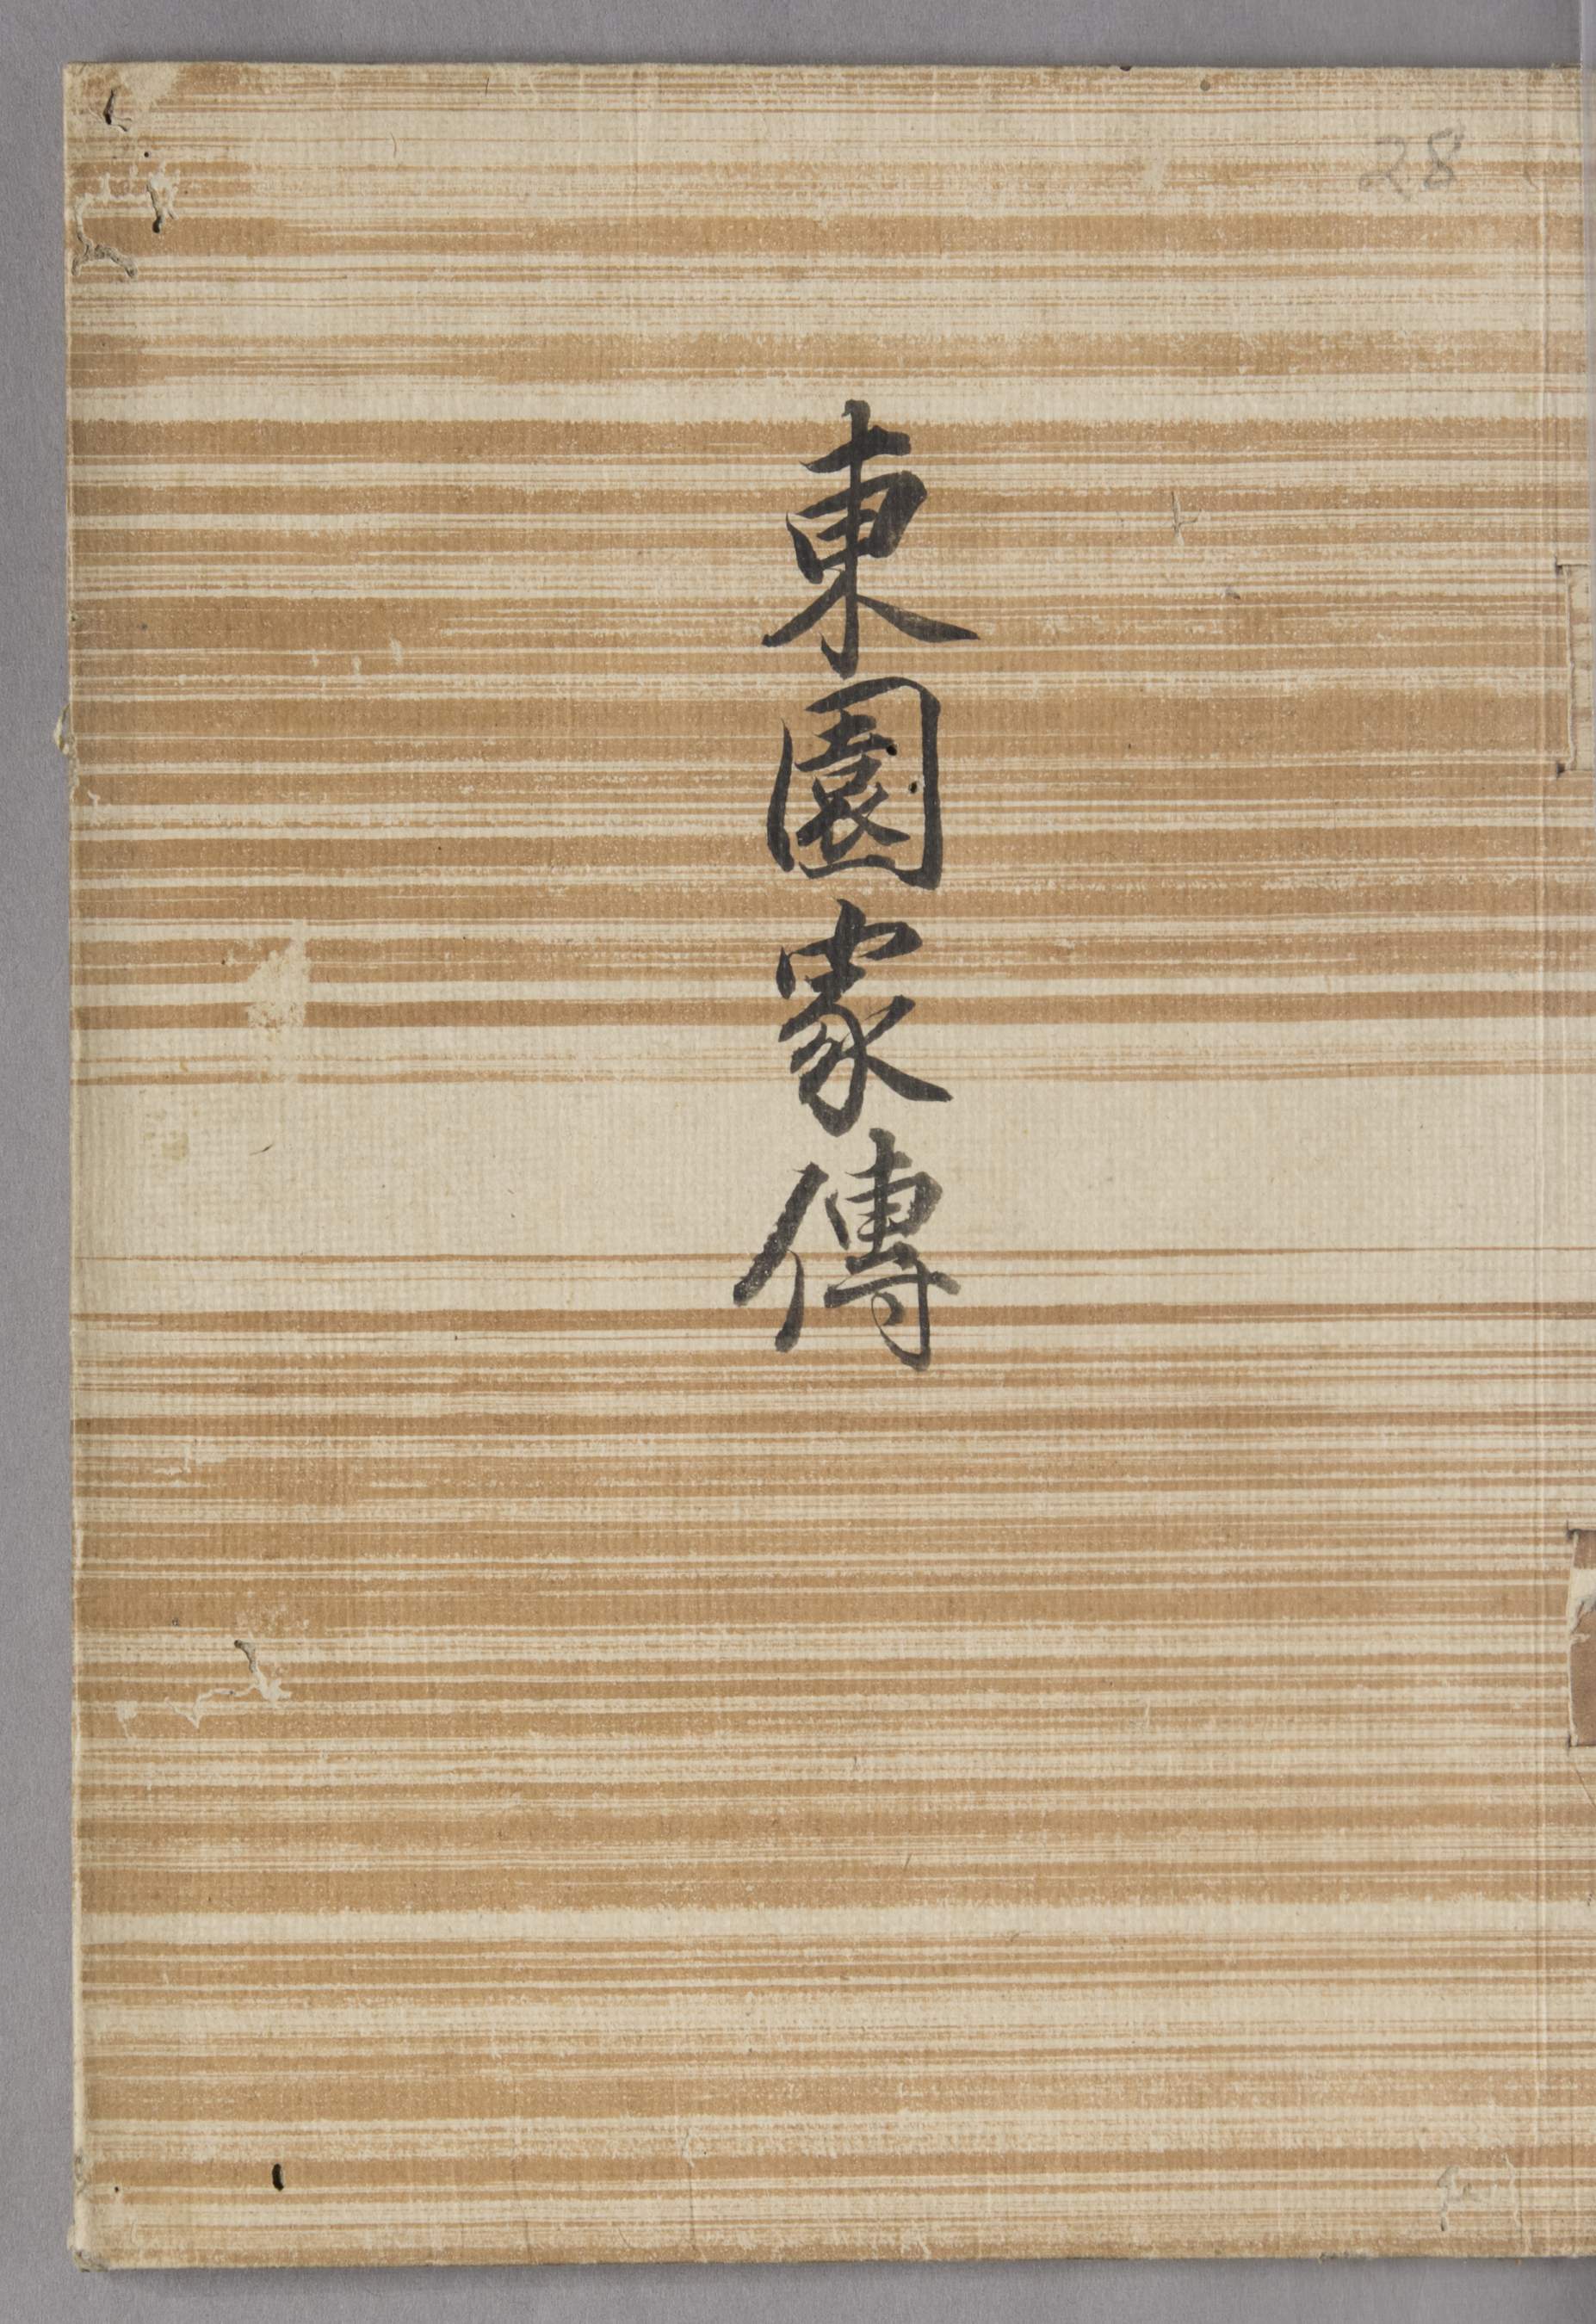 東園家傳
28